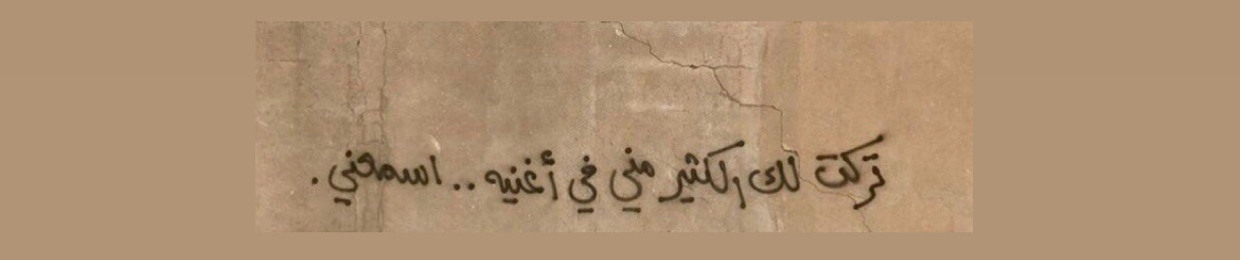 تركت لك الكثير مني في أغنيه .. اسمعني .